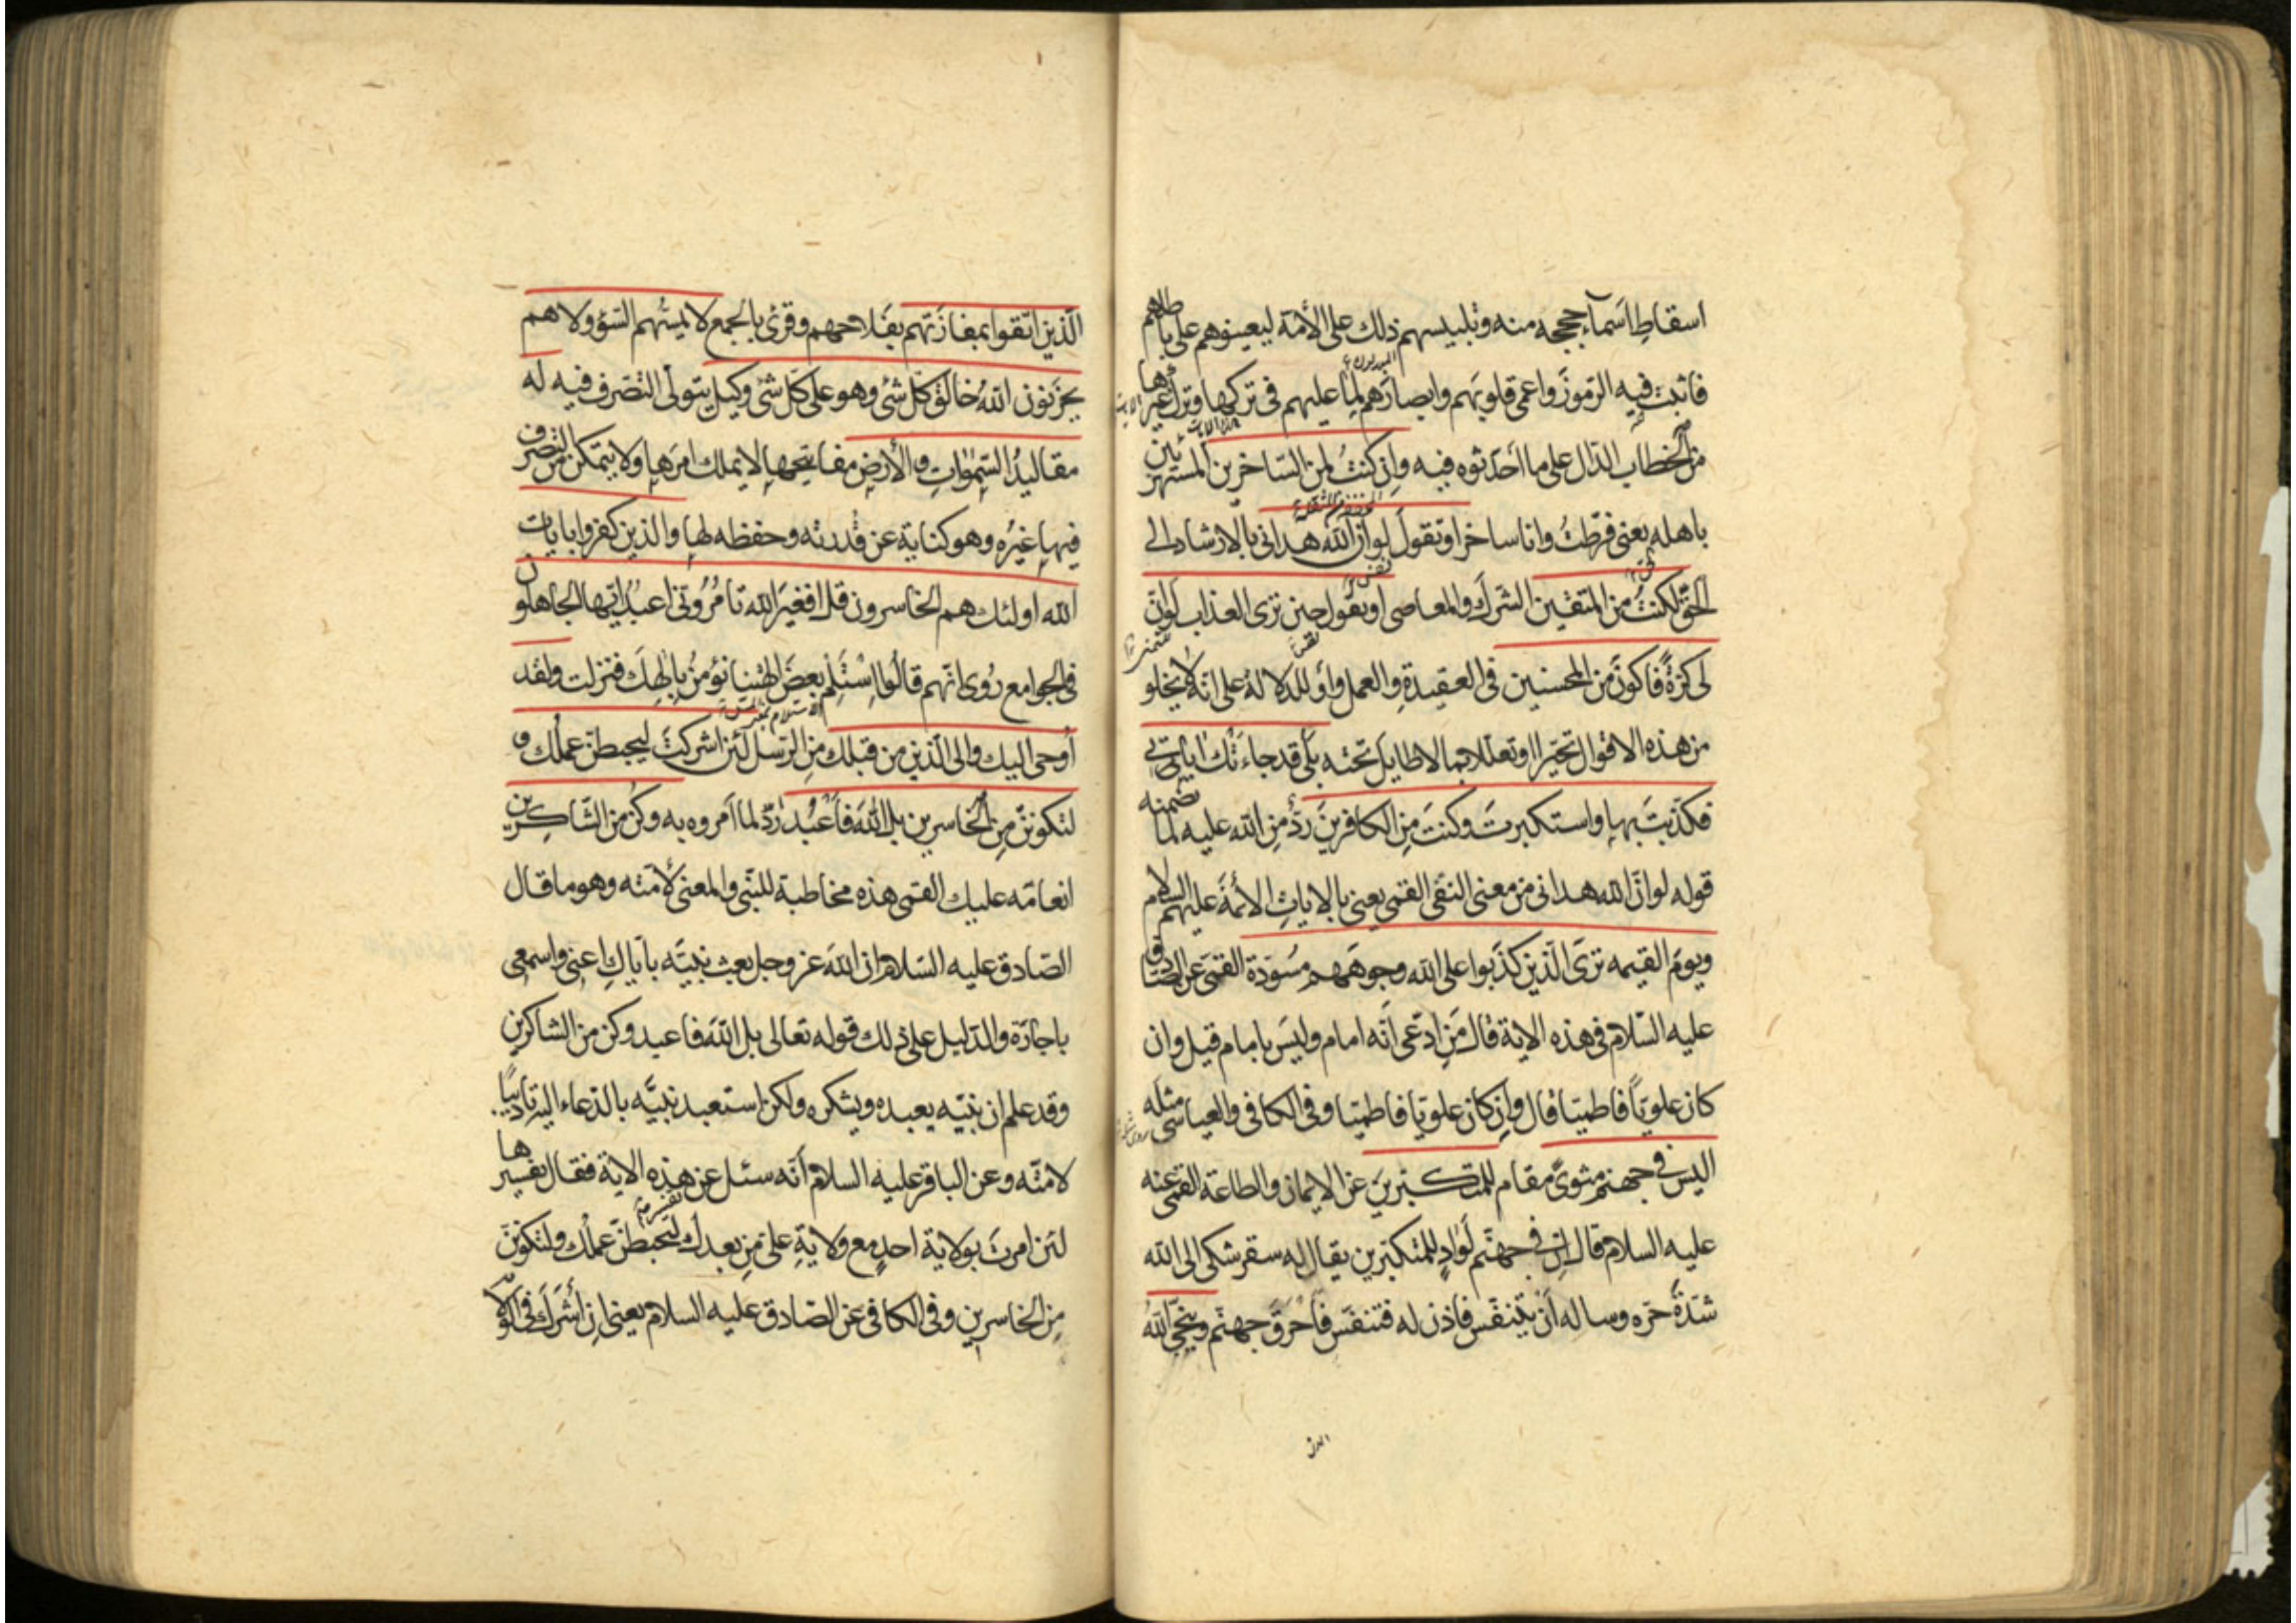 اسقاط اسمآء حججه منه وتلبيسهم ذلك على الأمة ليعينوهم على باطلهم
فاثبت فيه الرموز واعمى قلوبهم وابصارهم لما عليهم فى تركها وترك غيرها
من الخطاب الدال على ما احدثوه فيه وان كنت لمن الساخرين المستهزئين
باهله يعنى فرطت وانا ساخر او تقول لو ان الله هدانى بالارشاد الى
الحق لكنت من المتقين الشرك والمعاصى او تقول حين ترى العذاب لو ان
لى كرة فاكون من المحسنين فى العقيدة والعمل واو للدلالة على انه لا يخلو
من هذه الاقوال تحيرا او تعللا بما لا طايل تحته بلى قد جاءتك اياتى
فكذبت بها واستكبرت وكنت من الكافرين رد من الله عليه لما تضمنه
قوله لو ان الله هدانى من معنى النفى القمى يعنى بالايات الأئمة عليهم السلام
ويوم القيمه ترى الذين كذبوا على الله وجوههم مسودة القمى عن الصادق
عليه السلام فى هذه الاية قال من ادعى انه امام وليس بامام قيل وان
كان علويا فاطميا قال وان كان علويا فاطميا وفى الكافى والعياشى مثله
اليس فى جهنم مثوى مقام للمتكبرين عن الايمان والطاعة القمى عنه
عليه السلام قال ان فى جهنم لواد للمتكبرين يقال له سقر شكى الى الله
شدة حره وساله ان يتنفس فاذن له فتنفس فاحرق جهنم وينجى الله
الذين
الذين اتقوا بمفازتهم بفلاحهم وقرئ بالجمع لا يمسهم السؤ ولا هم
يحزنون الله خالق كل شئ وهو على كل شئ وكيل يتولى التصرف فيه له
مقاليد السموات والأرض مفاتيحها لا يملك امرها ولا يتمكن من التصرف
فيها غيره وهو كناية عن قدرته وحفظه لها والذين كفروا بايات
الله اولئك هم الخاسرون قل افغير الله تامرونى اعبد ايها الجاهلون
فى الجوامع روى انهم قالوا استلم بعض الهتنا نؤمن بالهك فنزلت ولقد
اوحى اليك والى الذين من قبلك من الرسل لئن اشركت ليحبطن عملك و
لتكونن من الخاسرين بل الله فاعبد رد لما امروه به وكن من الشاكرين
انعامه عليك القمى هذه مخاطبة للنبى والمعنى لامته وهو ما قال
الصادق عليه السلام ان الله عز وجل بعث نبيه باياك اعنى واسمعى
يا جارة والدليل على ذلك قوله تعالى بل الله فاعبد وكن من الشاكرين
وقد علم ان نبيه يعبده ويشكره ولكن استعبد نبيه بالدعاء اليه تاديبا
لامته وعن الباقر عليه السلام انه سئل عن هذه الاية فقال تفسيرها
لئن امرت بولاية احد مع ولاية على من بعدك ليحبطن عملك ولتكونن
من الخاسرين وفى الكافى عن الصادق عليه السلام يعنى ان أشرك فى الولاية